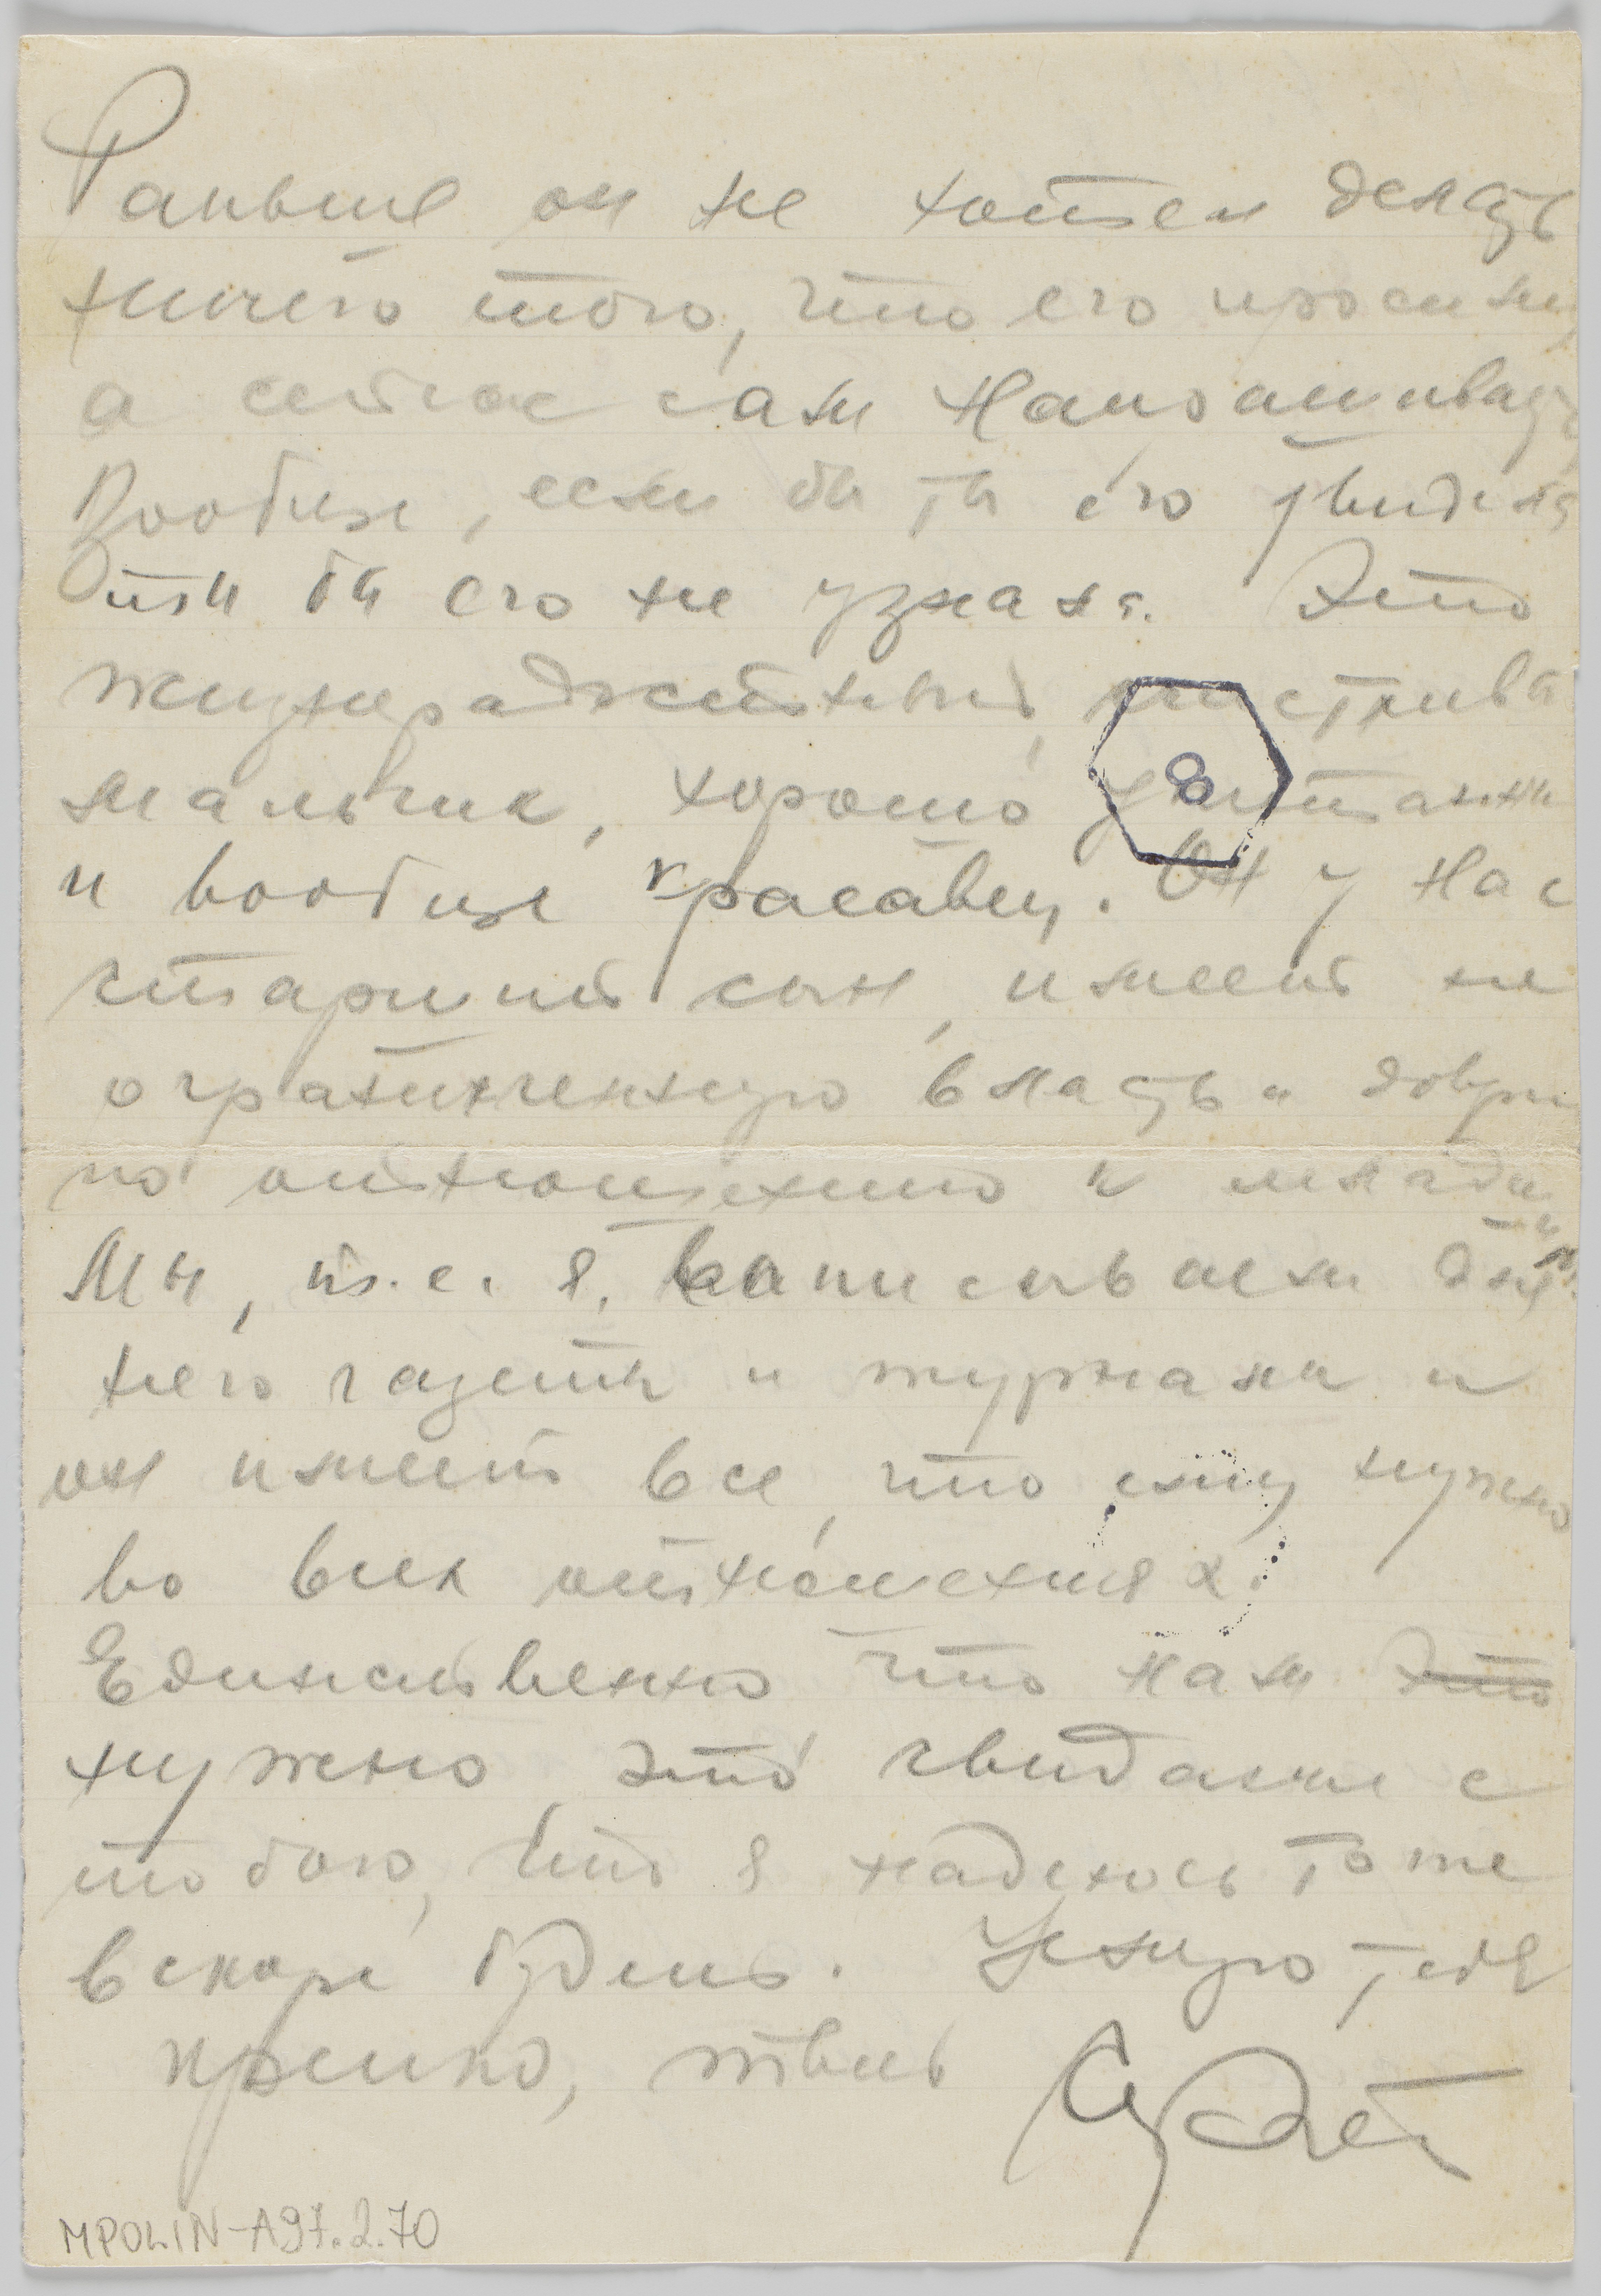 Раньше он не хотел делать
ничего того, что его просили,
а сейчас сам напрашивает
Вообще, если бы ты его увидела
ты бы его не узнала. Это
жизнерадостный, шустрый
мальчик, хорошо упитанный
и вообще красавец. Он у нас
старший сын, имеет не
ограниченную власть и
по отношению к младш
Мы, т.е. я, выписываем для
него газеты и журналы и
он имеет все, что ему нужно
во всех отношениях.
Единственно что нам это
нужно, это свидание с
тобою, что я надеюсь тоже
вскоре будет. Целую тебя
крепко, твой
8
MPOLIN-A97.2.70